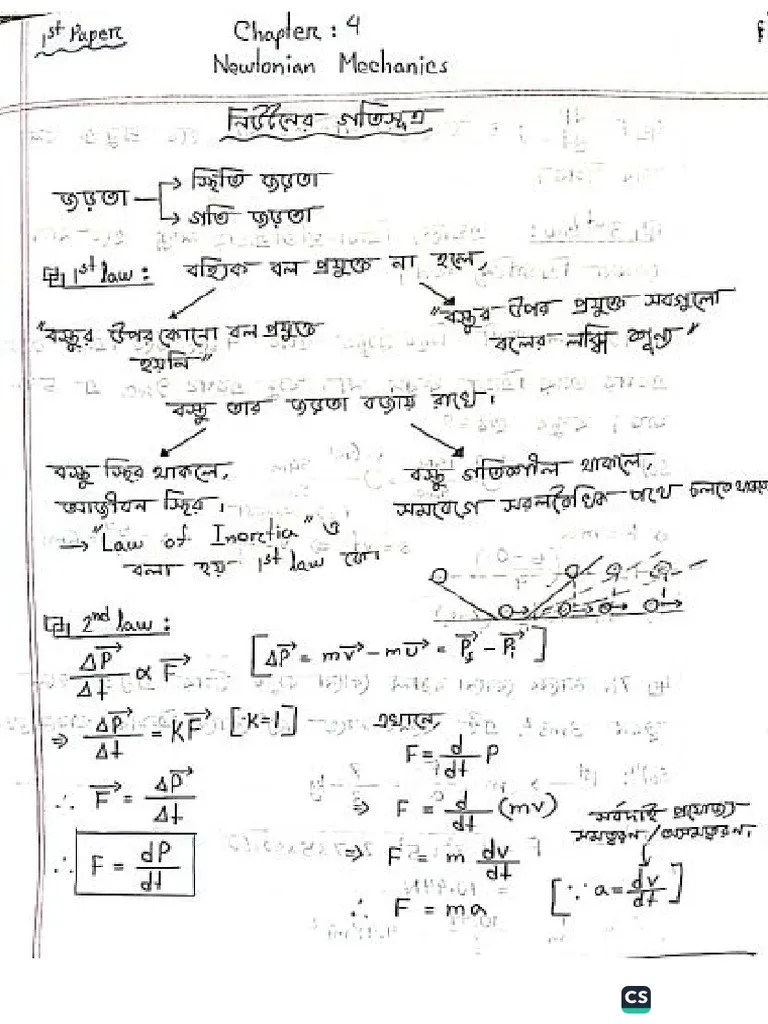 1st Paper
Chapter: 4
Newtonian Mechanics
নিউটনের গতিসূত্র
জড়তা → স্থিতি জড়তা
→ গতি জড়তা
1st law: বহ্যিক বল প্রযুক্ত না হলে,
"বস্তুর উপর কোনো বল প্রযুক্ত হয়নি"
"বস্তুর উপর প্রযুক্ত সবগুলো বলের লব্ধি শূন্য"
বস্তু তার জড়তা বজায় রাখে।
বস্তু স্থির থাকলে,
আজীবন স্থির।
বস্তু গতিশীল থাকলে,
সমবেগে সরলরৈখিক পথে চলতে থাকবে
→ "Law of Inertia" ও
বলা হয় 1st law কে।
2nd law:
ΔP⃗/Δt ∝ F⃗ [ΔP⃗ = mv⃗ - mu⃗ = P⃗f - P⃗i]
⇒ ΔP⃗/Δt = KF⃗ [∵K=1]
∴ F⃗ = ΔP⃗/Δt
∴ F = dP/dt
এখানে,
F = d/dt P
⇒ F = d/dt (mv)
⇒ F = m dv/dt
∴ F = ma
সর্বদাই প্রযোজ্য
সমত্বরণ/অসমত্বরণ।
[∵ a = dv/dt]
CS